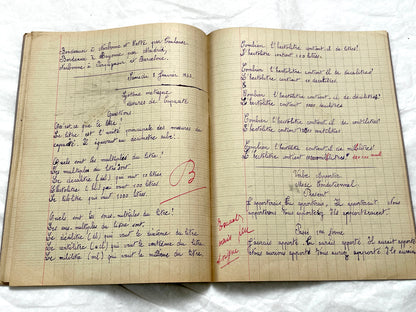 Bordeaux à Narbonne et Cette par Toulouse
Bordeaux à Bayonne par
Narbonne à Perpignan et Barcelone.
1 février
Système métrique
mesures de capacité
Questions
Qu'est-ce que le litre?
Le litre est l'unité principale des mesures de
capacité. Il équivaut au décimètre cube.
Quels sont les multiples du litre?
Les multiples du litre sont
Le décalitre (dal) qui vaut 10 litres
L'hectolitre (hl) qui vaut 100 litres
Le kilolitre qui vaut 1000 litres.
B
Quels sont les sous multiples du litre?
Les sous multiples du litre sont.
Le décilitre (dl) qui vaut le dixième du litre
Le centilitre (cl) qui vaut le centième du litre
Le millilitre (ml) qui vaut le millième du litre.
Combien l'hectolitre contient il de litres?
L'hectolitre contient 100 litres.
Combien l'hectolitre contient il de décalitres?
L'hectolitre contient décalitres
Combien l'hectolitre contient il de décilitres?
L'hectolitre contient 1000 décilitres
Combien l'hectolitre contient il de centilitres?
L'hectolitre contient centilitres
Combien l'hectolitre contient il de millilitres
L'hectolitre contient millilitres
Verbe Apporter
Mode Conditionnel
Présent
J'apporterais Tu apporterais, Il apporterait Nous
apporterions Vous apporteriez Ils apporteraient.
Passé 1re forme
J'aurais apporté. Tu aurais apporté. Il aurait apporté
Nous aurions apporté Vous auriez apporté Ils auraient